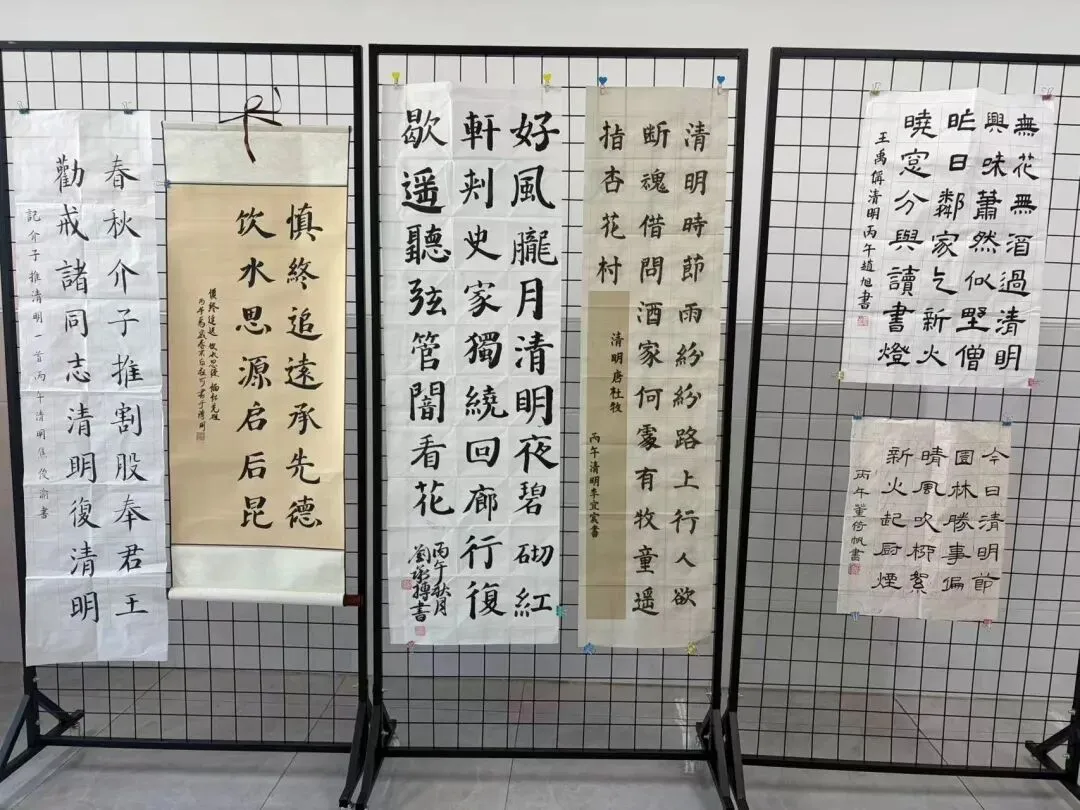 春秋介子推割股奉君王
勸戒諸同志清明復清明
記介子推清明一首丙午清明焦俊渝書
慎終追遠承先德
饮水思源启后昆
慎終追遠 饮水思源 缅怀先祖
好風朧月清明夜碧砌紅
軒刾史家獨繞回廊行復
歇遥聽弦管闇看花
丙午秋月
清明時節雨紛紛路上行人欲
断魂借問酒家何處有牧童遥
指杏花村
清明唐杜牧
丙午清明李宜宸書
無花無酒過清明
興味蕭然似埜僧
昨日鄰家乞新火
曉窓分與讀書燈
王禹偁清明丙午趙旭書
今日清明節
園林勝事偏
晴風吹柳絮
新火起厨煙
丙午董倚帆書